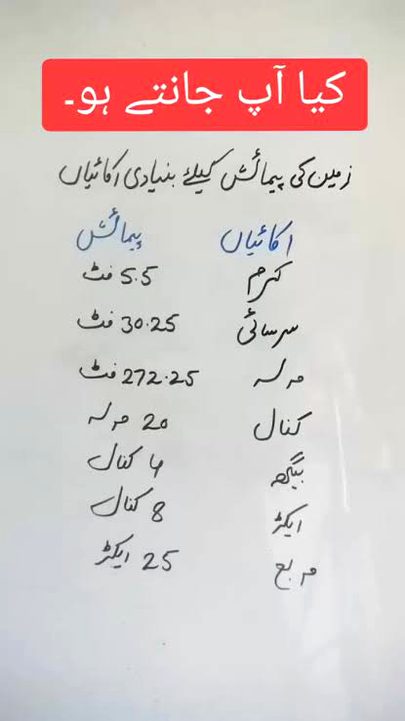 کیا آپ جانتے ہو۔
زمین کی پیمائش کیلئے بنیادی اکائیاں
اکائیاں پیمائش
کرم 5.5 فٹ
سرسائی 30.25 فٹ
مرلہ 272.25 فٹ
کنال 20 مرلہ
بیگھہ 4 کنال
ایکڑ 8 کنال
مربع 25 ایکڑ